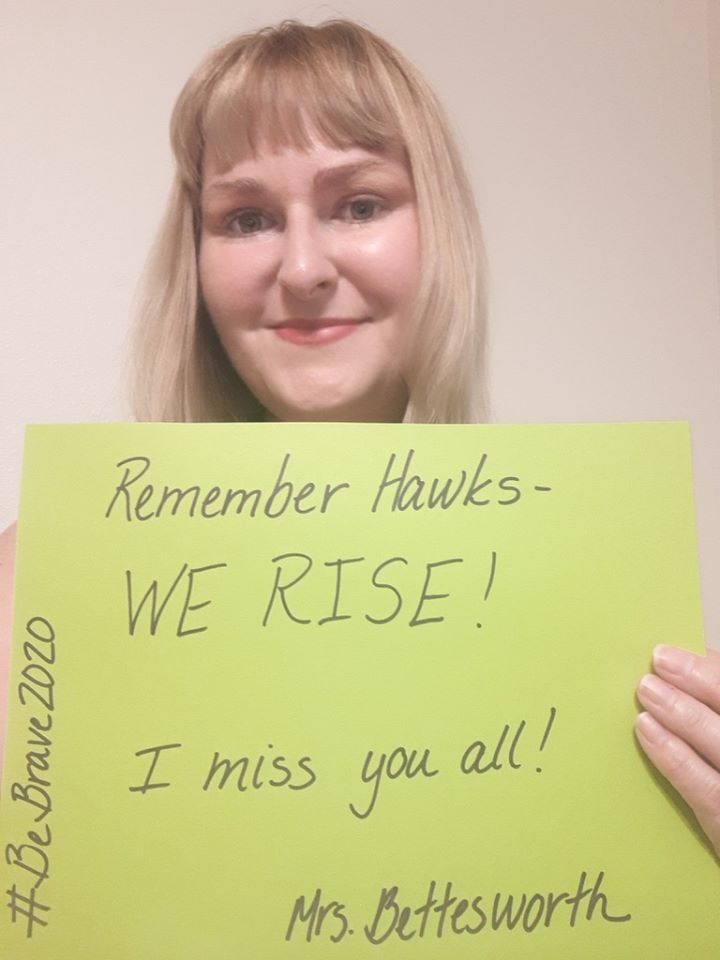 Remember Hawks-
WE RISE!
I miss you all!
Mrs. Bettesworth
#BeBrave2020